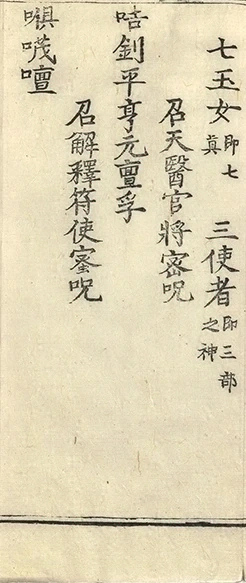 七玉女即七真　三使者即三部之神
召天醫官將密呪
唁釗平亨元亶孚
召解釋符使密呪
㗢噧嚪